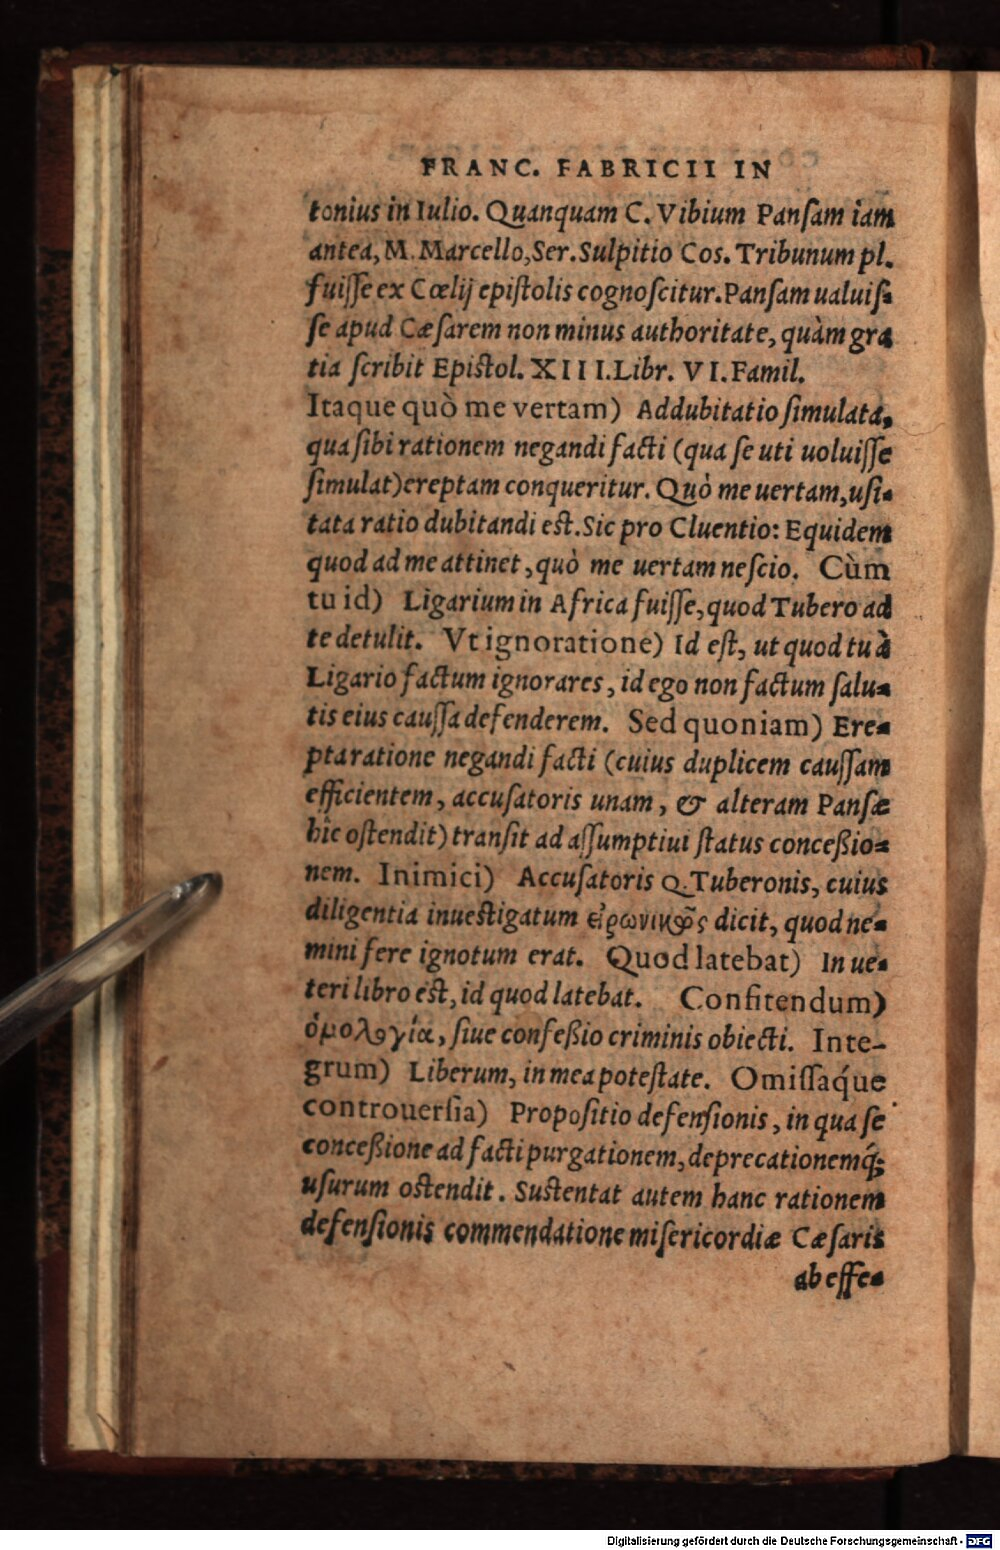 FRANC. FABRICII IN
tonius in Iulio. Quanquam C. Vibium Panſam iam
antea, M. Marcello, Ser. Sulpitio Cos. Tribunum pl.
fuiſſe ex Cœlij epiſtolis cognoſcitur. Panſam ualuiſ-
ſe apud Cæſarem non minus authoritate, quàm gra
tia ſcribit Epiſtol. XIII. Libr. VI. Famil.
Itaque quò me vertam) Addubitatio ſimulata,
qua ſibi rationem negandi facti (qua ſe uti uoluiſſe
ſimulat) ereptam conqueritur. Quò me uertam, uſi-
tata ratio dubitandi eſt. Sic pro Cluentio: Equidem
quod ad me attinet, quò me uertam neſcio. Cùm
tu id) Ligarium in Africa fuiſſe, quod Tubero ad
te detulit. Vt ignoratione) Id eſt, ut quod tu à
Ligario factum ignorares, id ego non factum ſalu-
tis eius cauſſa defenderem. Sed quoniam) Ere-
pta ratione negandi facti (cuius duplicem cauſſam
efficientem, accuſatoris unam, & alteram Panſæ
hîc oſtendit) tranſit ad aſſumptiui ſtatus conceßio-
nem. Inimici) Accuſatoris Q. Tuberonis, cuius
diligentia inueſtigatum εἰρωνικῶς dicit, quod ne-
mini fere ignotum erat. Quod latebat) In ue-
teri libro eſt, id quod latebat. Confitendum)
ὁμολογία, ſiue confeßio criminis obiecti. Inte-
grum) Liberum, in mea poteſtate. Omiſſaq́ue
controuerſia) Propoſitio defenſionis, in qua ſe
conceßione ad facti purgationem, deprecationemq́;
uſurum oſtendit. Suſtentat autem hanc rationem
defenſionis commendatione miſericordiæ Cæſaris
ab effe-
Digitalisierung gefördert durch die Deutsche Forschungsgemeinschaft - DFG